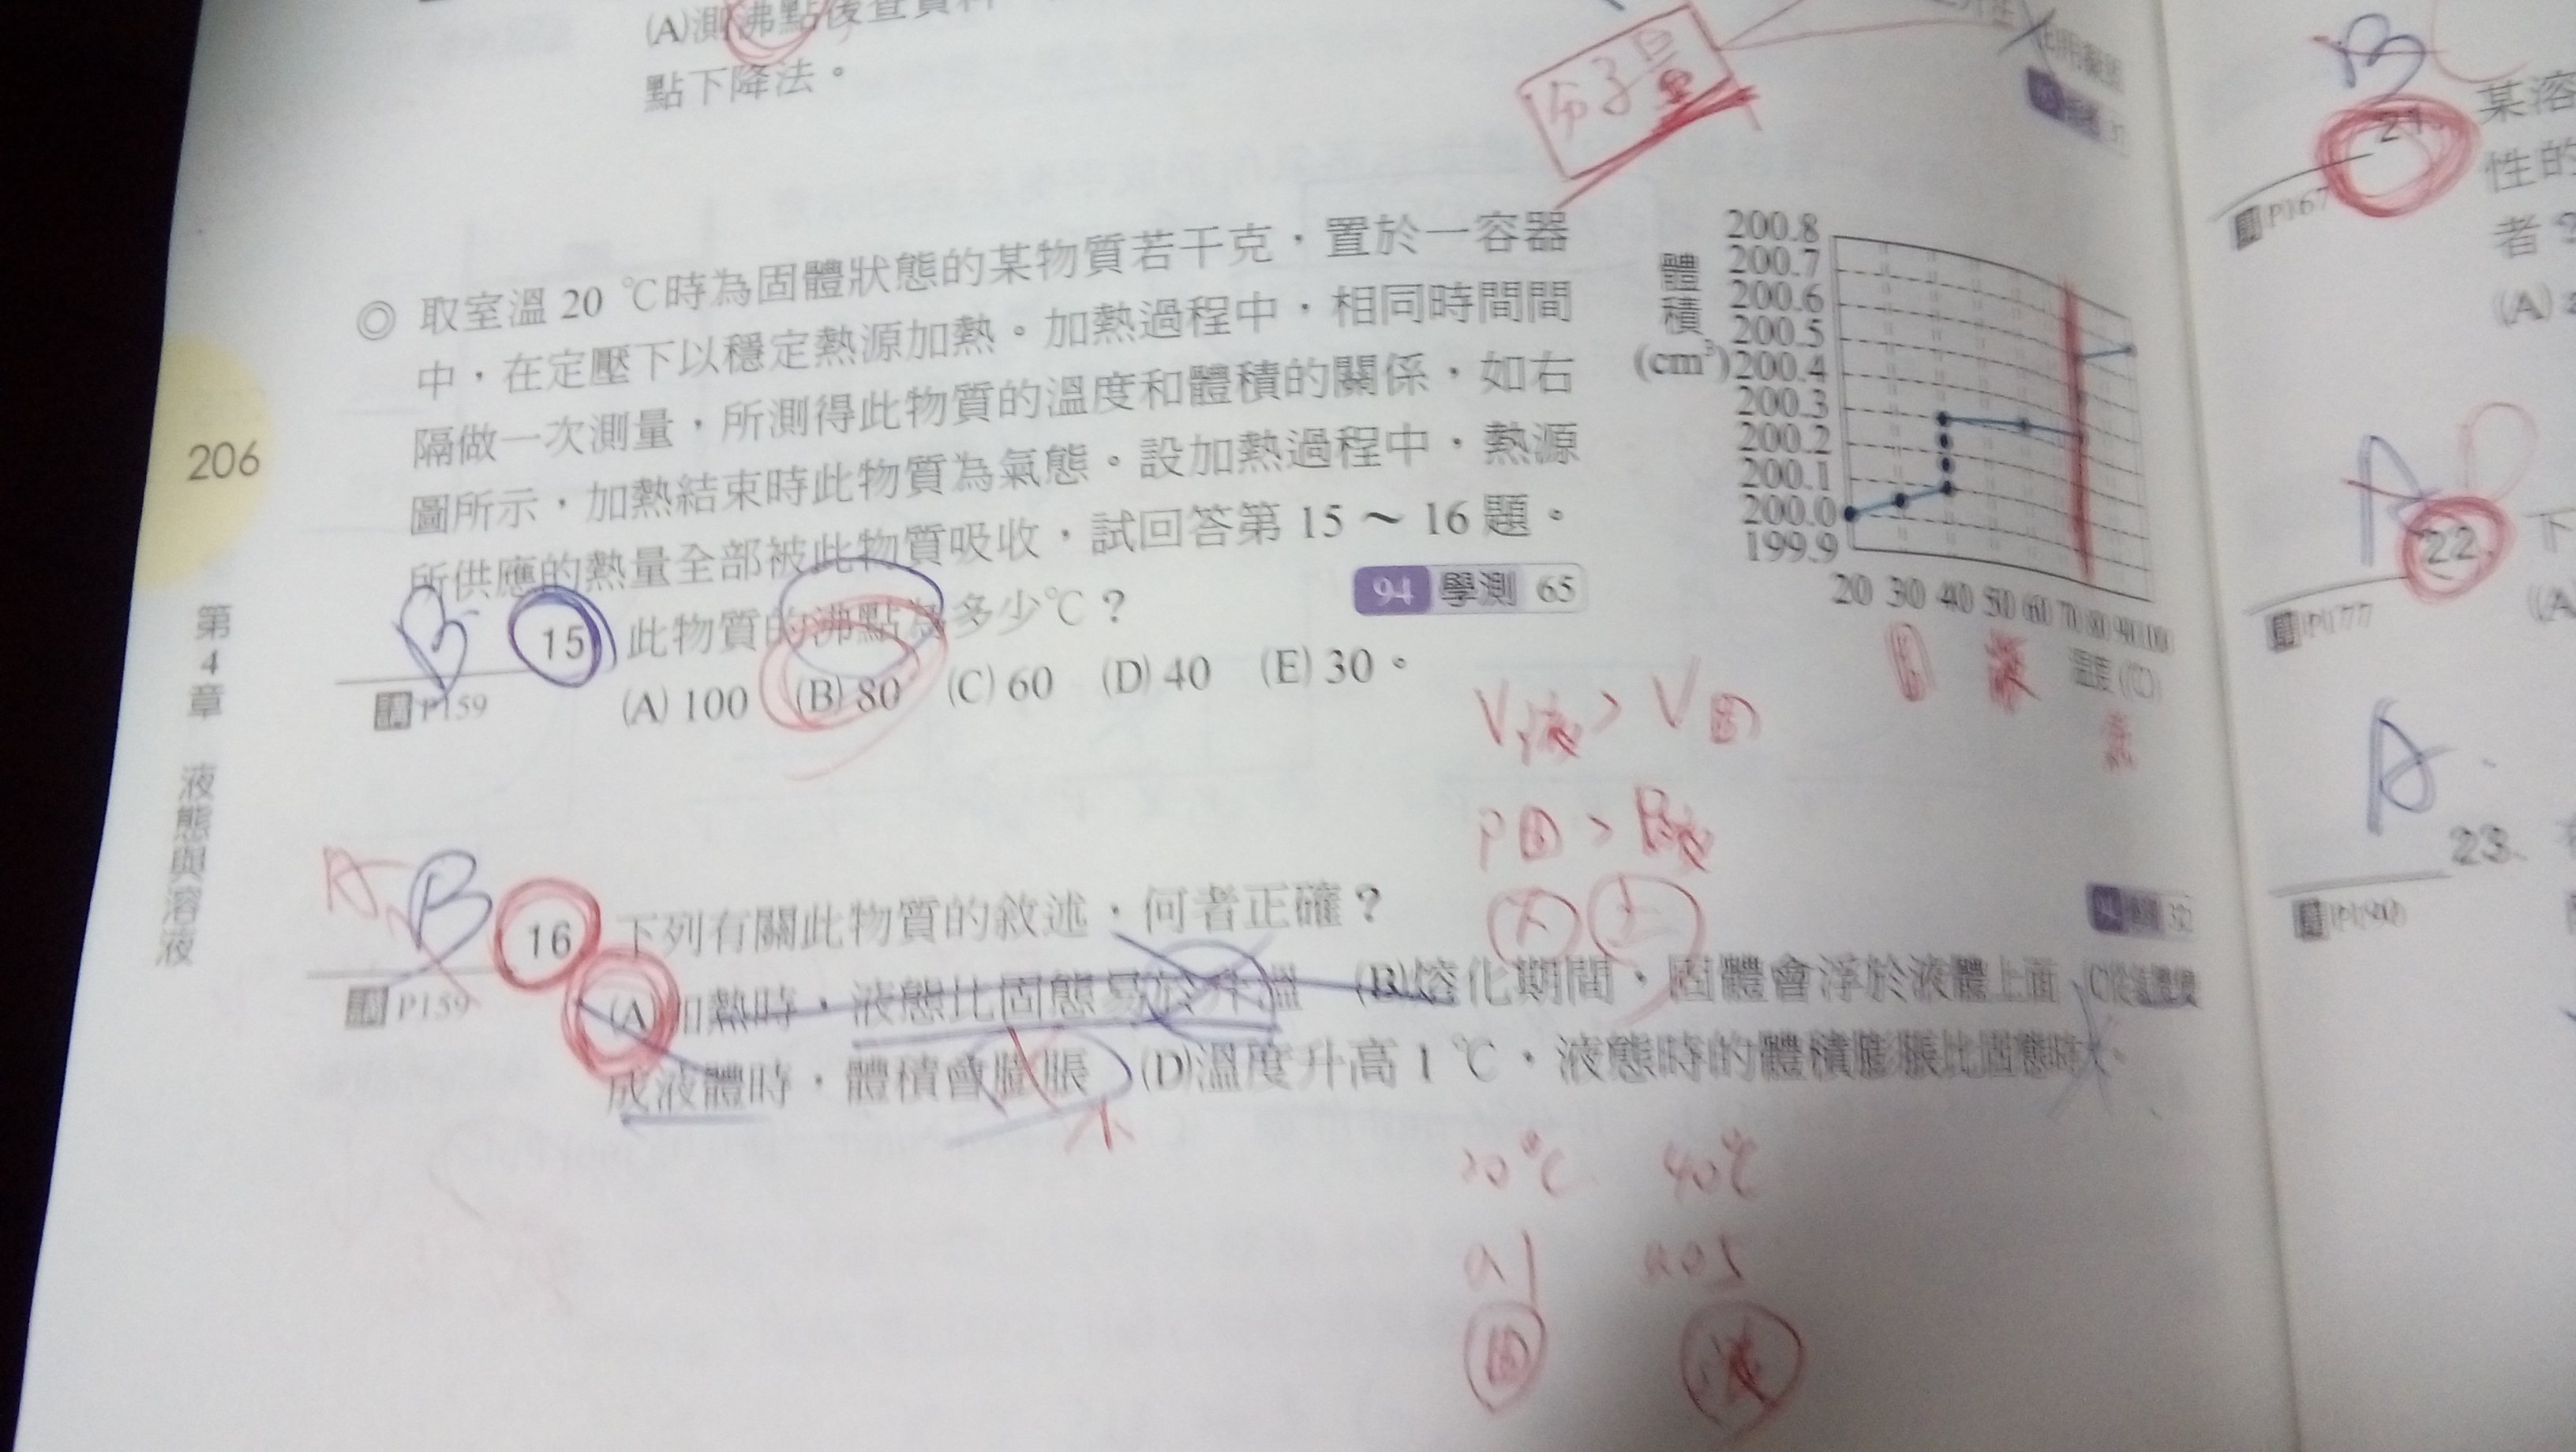 (A)測沸點後查資料
點下降法。
分子量
◎ 取室溫 20 ℃時為固體狀態的某物質若干克，置於一容器
中，在定壓下以穩定熱源加熱。加熱過程中，相同時間間
隔做一次測量，所測得此物質的溫度和體積的關係，如右
圖所示，加熱結束時此物質為氣態。設加熱過程中，熱源
所供應的熱量全部被此物質吸收，試回答第 15～16 題。
94 學測 65
B 15 此物質的沸點為多少℃？
(A) 100 (B) 80 (C) 60 (D) 40 (E) 30。
講 P159
體積(cm³)
200.8
200.7
200.6
200.5
200.4
200.3
200.2
200.1
200.0
199.9
20 30 40 50 60 70 80 90 100
溫度(℃)
固 液 氣
V液 > V固
A B 16 下列有關此物質的敘述，何者正確？
(A)加熱時，液態比固態易於升溫 (B)熔化期間，固體會浮於液體上面 (C)從氣體變
成液體時，體積會膨脹 (D)溫度升高 1 ℃，液態時的體積膨脹比固態時大。
講 P159
40℃
固 液
206
第4章 液態與溶液
B
21.
某溶
性的
者
(A)
P167
A
22.
下
(A
P177
A
23.